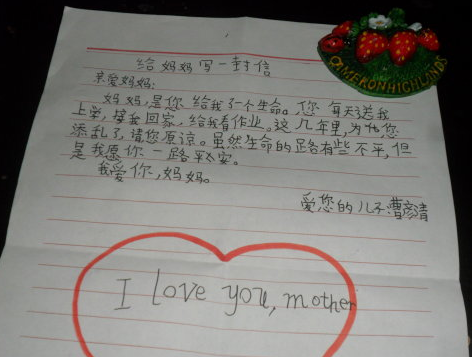 给妈妈写一封信
亲爱妈妈:
妈妈,是您给我了一个生命。您每天送我
上学,接我回家,给我看作业。这几年里,为他您
添乱了,请您原谅。虽然生命的路有些不平,但
是我愿你一路平安。
我爱你,妈妈。
爱您的儿子曹
I love you, mother
CAMERONHIGHLANDS